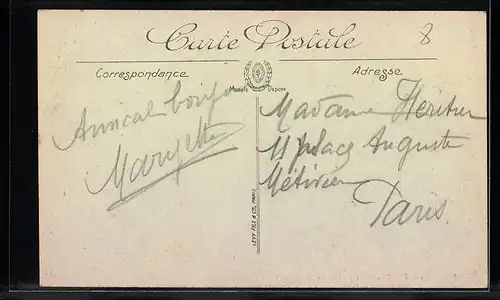 Carte Postale
8
Correspondance
Adresse
Modèle Déposé
Amical bonjour
Madame Heritier
11 place Auguste
Métivier
Paris
LEVY FILS & CO, PARIS